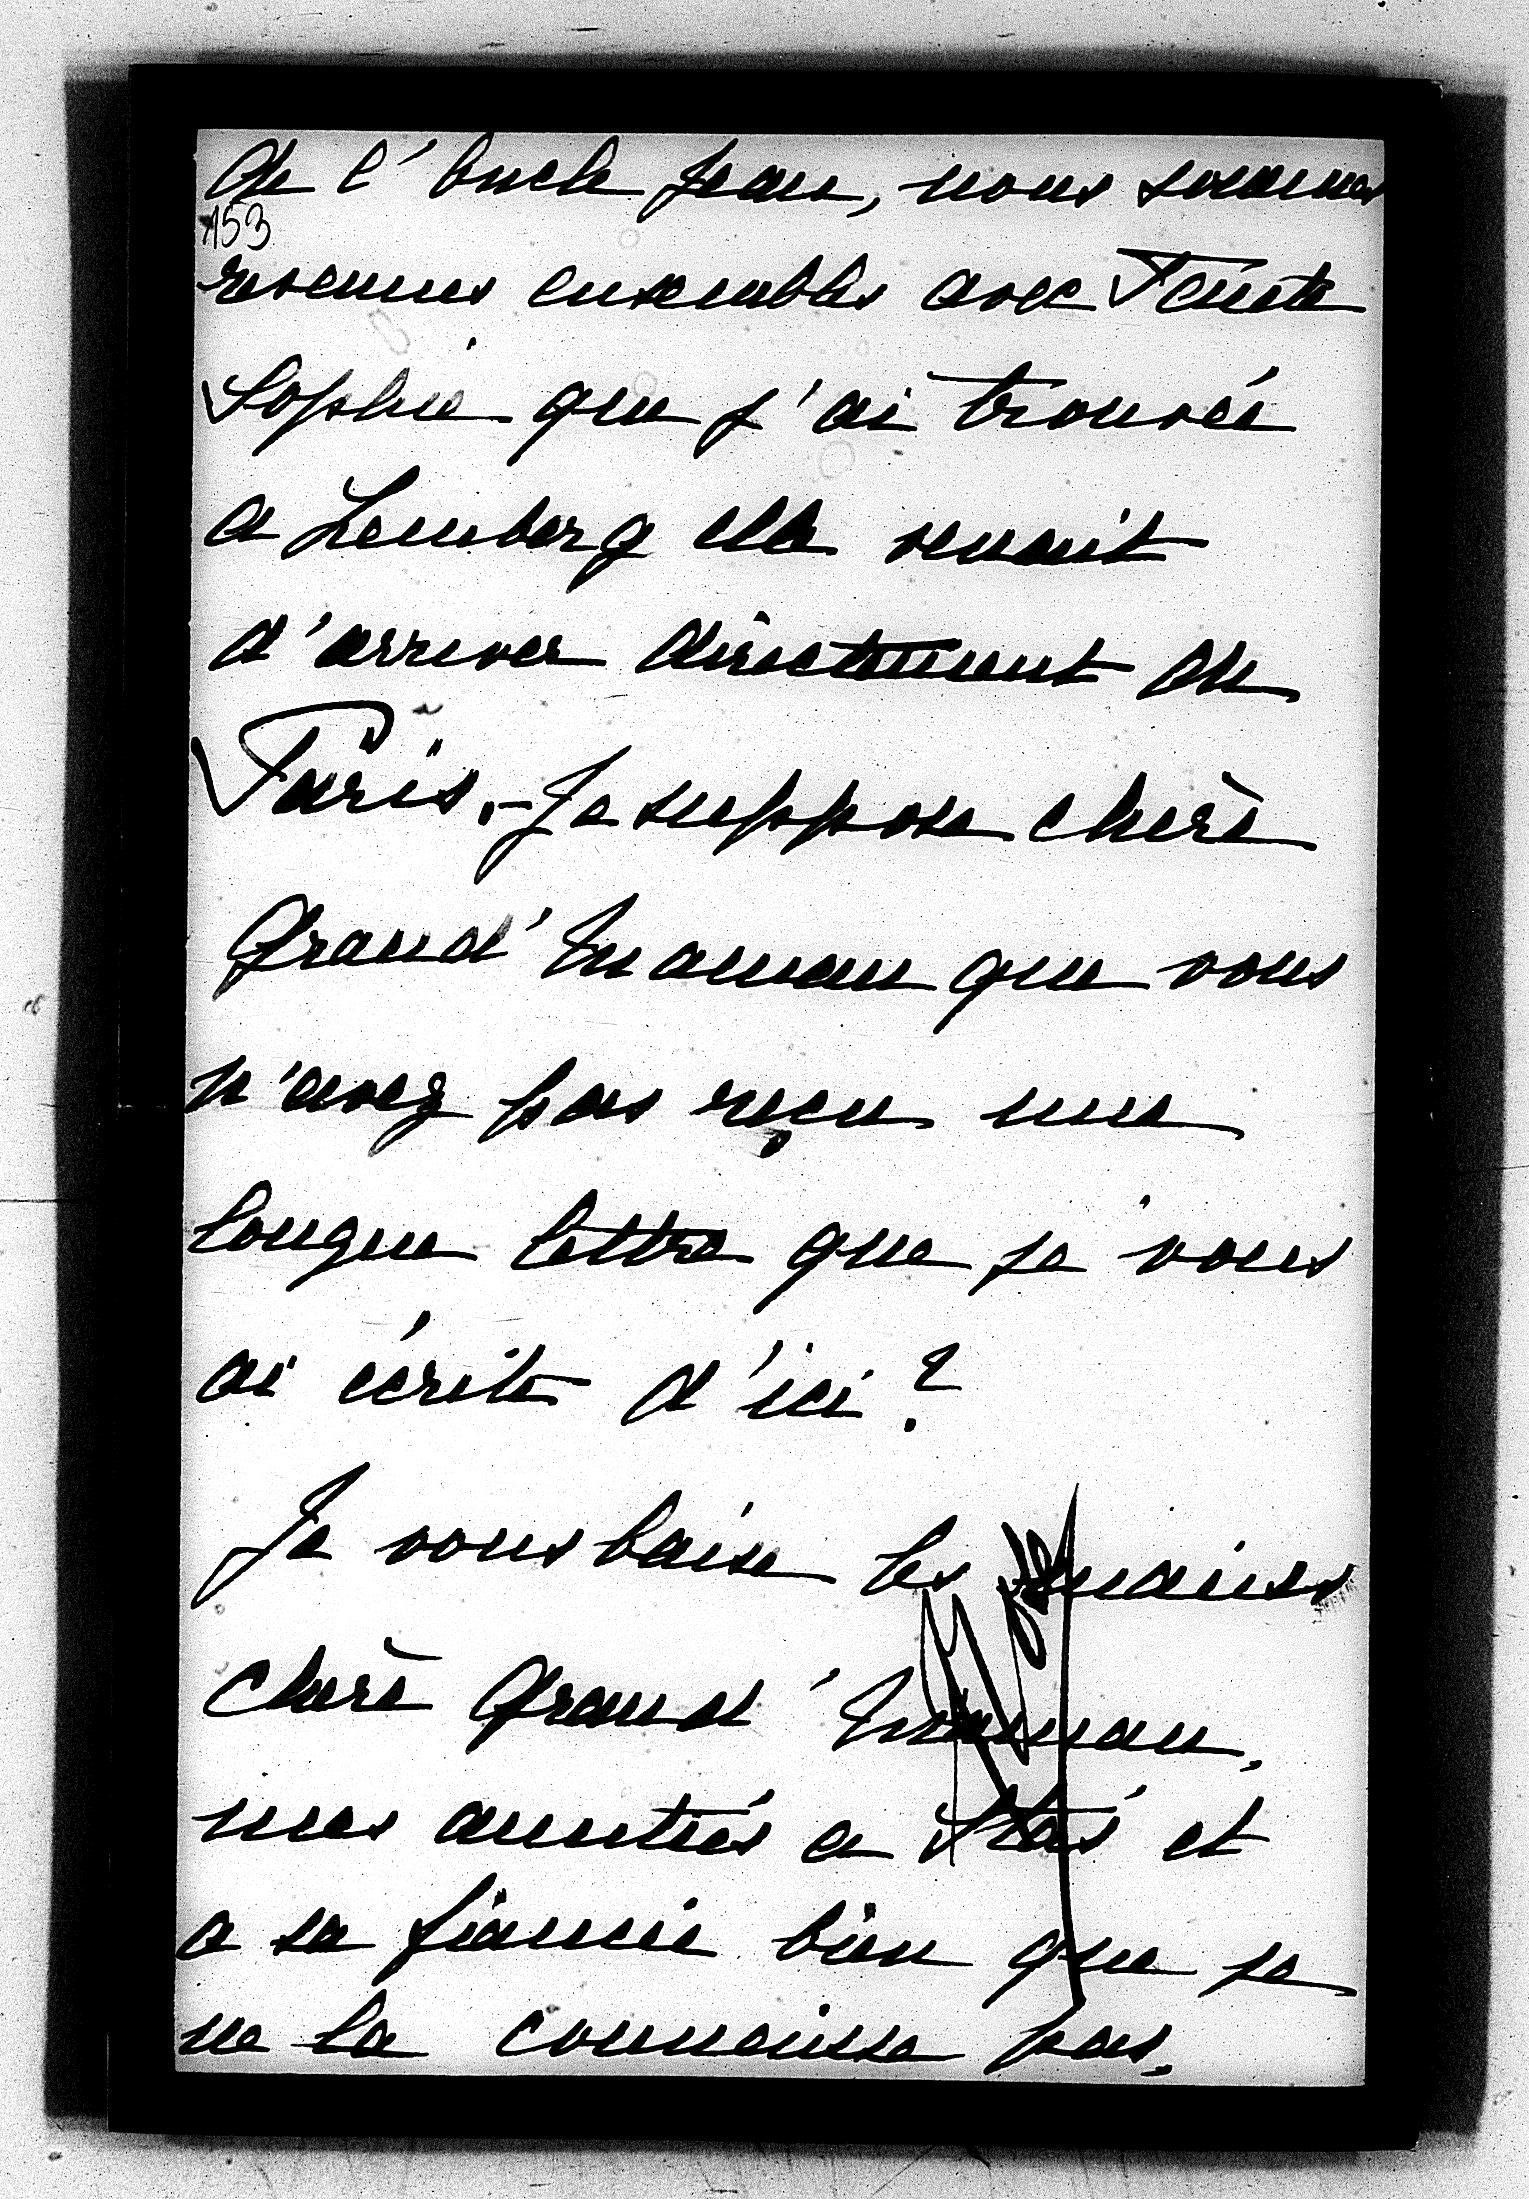 de l'oncle Jean, nous sommes
153
revenus ensembles avec Tante
Sophie que j'ai trouvée
a Lemberg elle venait
d'arriver directement de
Paris. – Je suppose cherè
Grand'Maman que vous
n'avez pas reçu une
longue lettre que je vous
ai écrite d'ici ?
Je vous baise les mains
cherè Grand'Maman,
mes amitiés a Staś et
a sa fiancée bien que je
ne la connaisse pas.